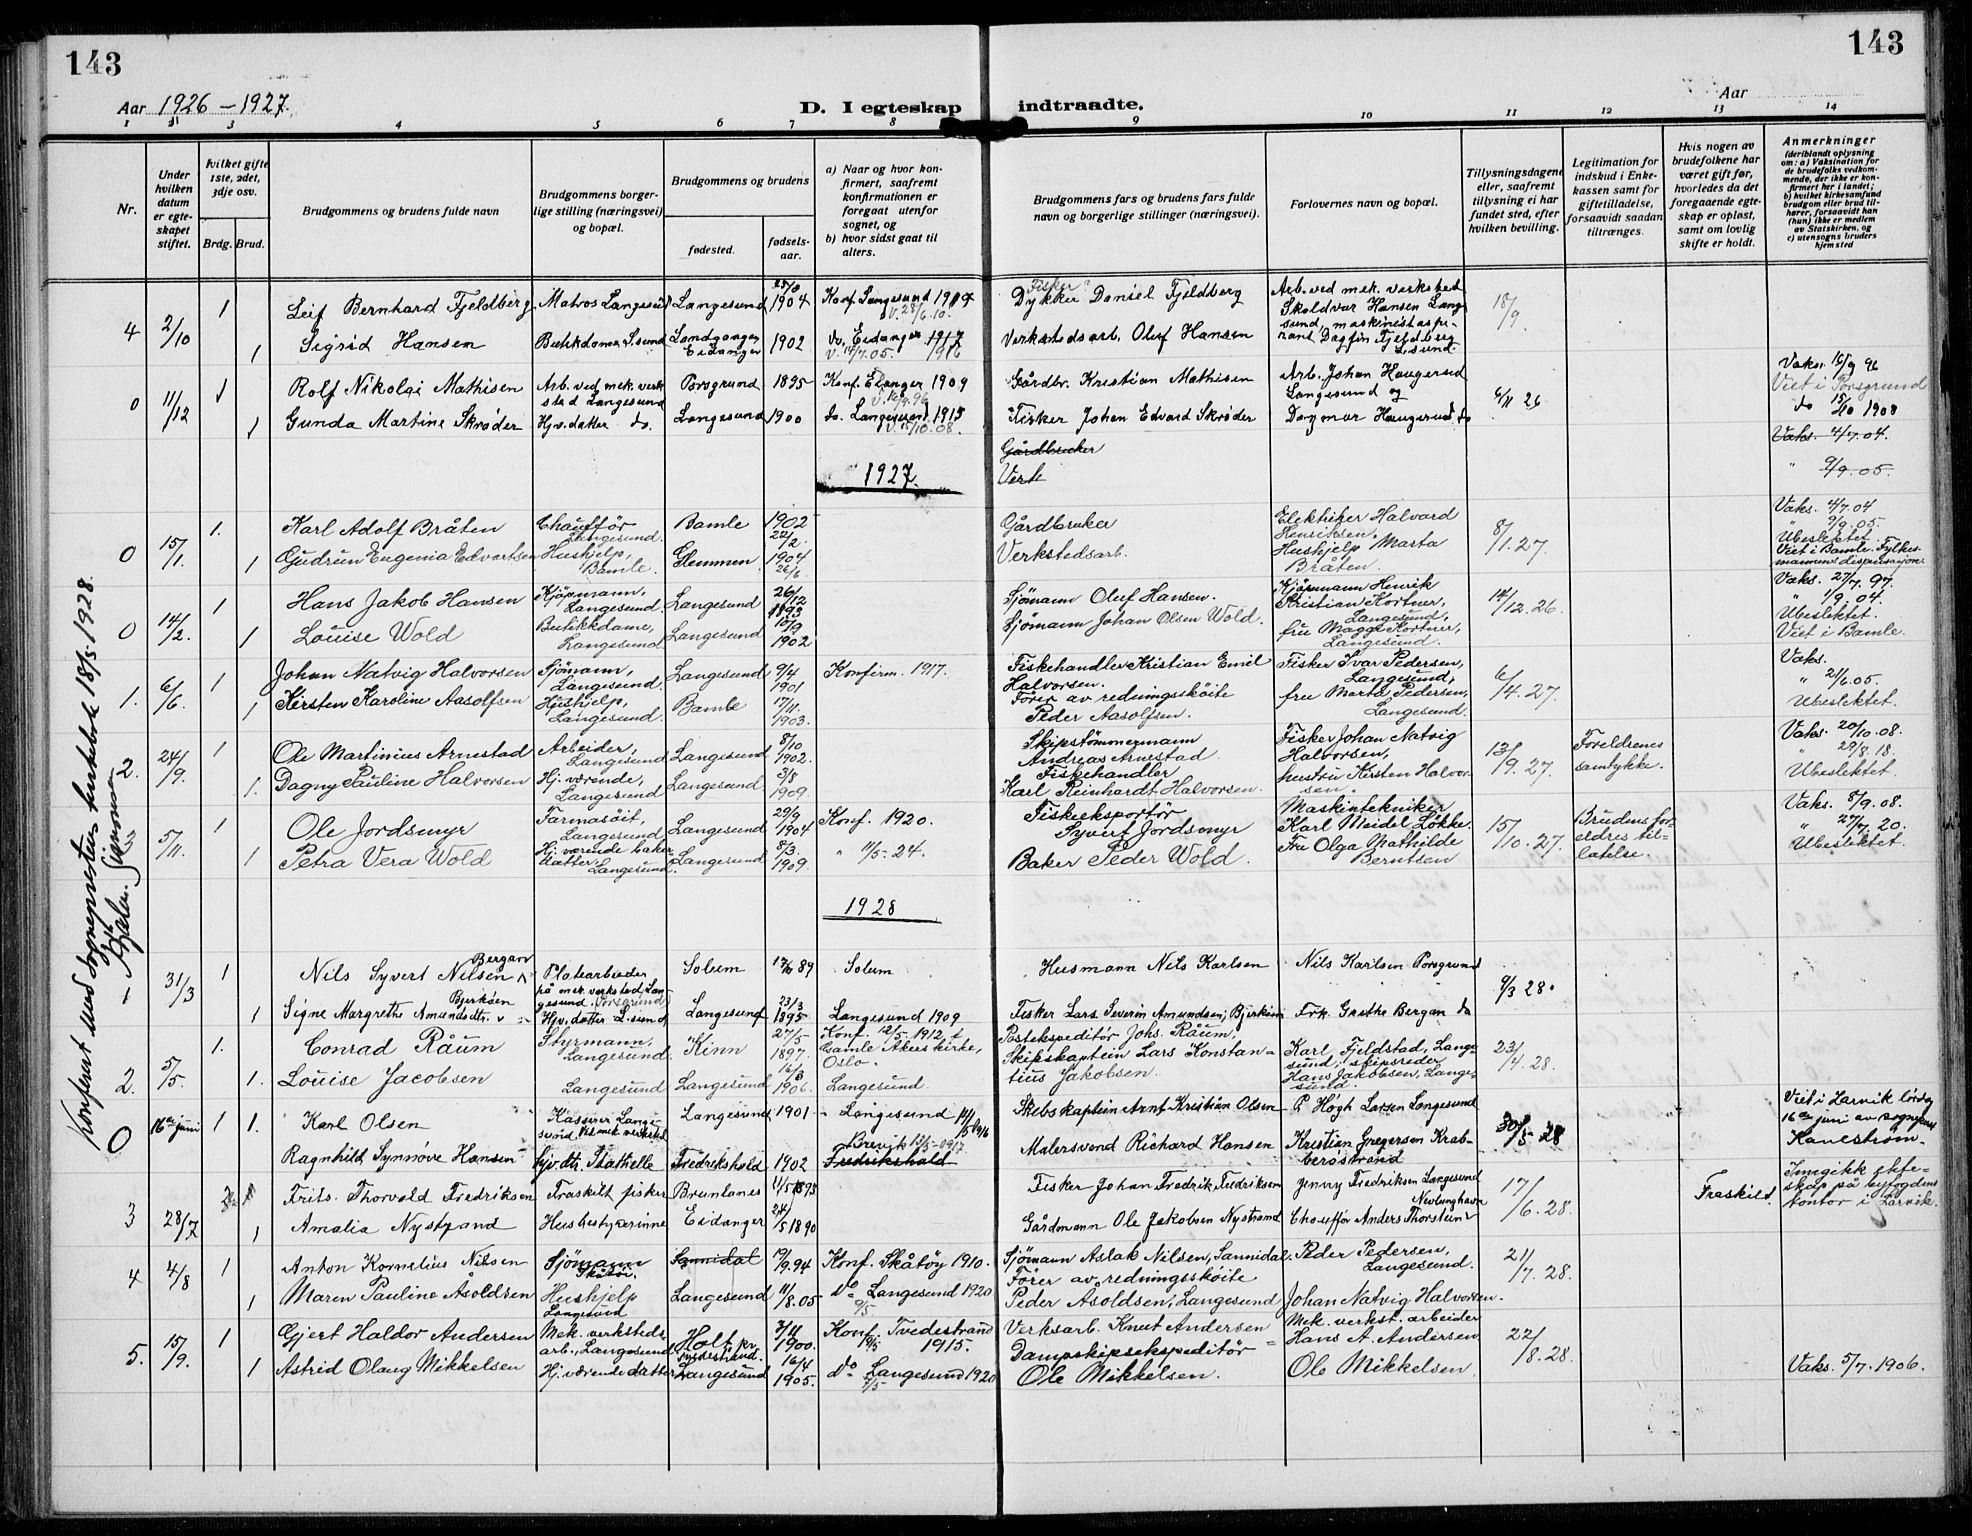 143
143
Aar 1926 – 1927.
D. I egteskap indtraadte.
Aar
1 2 3 4 5 6 7 8 9 10 11 12 13 14
Nr.
Under hvilken datum er egteskapet stiftet.
hvilket gifte 1ste, 2det, 3dje osv.
Brdg. Brud.
Brudgommens og brudens fulde navn
Brudgommens borgerlige stilling (næringsvei) og bopæl.
Brudgommens og brudens
fødested.
fødselsaar.
a) Naar og hvor konfirmert, saafremt konfirmationen er foregaat utenfor sognet, og
b) hvor sidst gaat til alters.
Brudgommens fars og brudens fars fulde navn og borgerlige stillinger (næringsvei).
Forlovernes navn og bopæl.
Tillysningsdagene eller, saafremt tillysning ei har fundet sted, efter hvilken bevilling.
Legitimation for indskud i Enkekassen samt for giftetilladelse, forsaavidt saadan tiltrænges.
Hvis nogen av brudefolkene har været gift før, hvorledes da det foregaaende egteskap er opløst, samt om lovlig skifte er holdt.
Anmerkninger
(deriblandt oplysning om: a) Vaksination for de brudefolks vedkommende, der ikke er konfirmert her i landet; b) hvilket kirkesamfund brudgom eller brud tilhører, forsaavidt han (hun) ikke er medlem av Statskirken, og c) utensogns bruders hjemsted
4 2/10 1 Leif Bernhard Fjeldberg Matros Langesund Langesund 1904 Konf. Langesund 1919 Fisker Dykker Daniel Fjeldberg Arb. ved mek. verksted Skoldvar Hansen Langesund, maskinistaspirant Dagfin Fjeldberg L.sund. 18/9
1 Sigrid Hansen Butikdame L.sund Landgangen Eidanger 1902 do. Eidanger 1917 Verkstedsarb. Oluf Hansen
0 11/12 1 Rolf Nikolai Mathisen Arb. ved mek. verksted Langesund Porsgrund 1895 Konf. Eidanger 1909 Gårdbr. Kristian Mathisen Arb. Johan Haugerud Langesund og 6/11 26 Vaks. 16/9 96 Viet i Porsgrund
1 Gunda Martine Skrøder Hjv. datter do. Langesund 1900 do. Langesund 1915 v. 15/10.08. Fisker Johan Edvard Skrøder Dagmar Haugerud do do 15/10 1908
Gårdbruker Vaks. 4/7.04.
1927. Verk " 9/9.05.
0 15/1. 1. Karl Adolf Bråten Chauffør Langesund. Bamle 1902 22/2. Gårdbruker Elektriker Halvard Henriksen, 8/1.27. Vaks. 4/7.04 " 9/9.05.
1 Gudrun Eugenia Edvartsen Hushjelp, Bamle. Glemmen 1904 26/6 Verkstedsarb. Hushjelp Marta Bråten. Ubeslektet. Viet i Bamle. Fylkesmannens dispensasjon.
0 14/2. 1 Hans Jakob Hansen Kjøpmann, Langesund. Langesund 26/12 1893 Sjømann Oluf Hansen. Kjøpmann Henrik Kristian Kortner, Langesund, 14/12.26. Vaks. 27/7.97. " 1/9.04.
1 Louise Wold Butikkdame, Langesund Langesund 15/9 1902 Sjømann Johan Olsen Wold. fru Magga Kortner, Langesund. Ubeslektet. Viet i Bamle.
1. 6/6. 1 Johan Natvig Halvorsen Sjømann, Langesund. Langesund 9/4 1901 Konferm. 1917. Fiskehandler Kristian Emil Halvorsen. Fisker Ivar Pedersen, Langesund, 6/4.27. Vaks. " 21/6.05.
1 Kirsten Karoline Aasolfsen Hushjelp, Langesund. Bamle 17/11. 1903. Fører av redningsskøite Peder Aasolfsen. fru Marta Pedersen, Langesund. Ubeslektet
2. 24/9. 1 Ole Martinius Arnestad Arbeider, Langesund Langesund 8/10 1902. Skipstømmermann Andreas Arnestad Fisker Johan Natvig Halvorsen, 13/9.27. Foreldrenes samtykke. Vaks. 20/10.08. " 29/8.18.
1. Dagny Pauline Halvorsen Hj. værende, Langesund Langesund 2/8 1909. Fiskehandler Karl Reinhardt Halvorsen. hustru Kirsten Halvorsen. Ubeslektet.
3. 5/11. 1 Ole Jordsmyr Farmasøit, Langesund Langesund 29/9 1904 Konf. 1920. Fiskeeksportør Syvert Jordsmyr Maskintekniker Karl Meidel Løkke. 15/10.27. Brudens foreldres tillatelse. Vaks. 8/9.08. " 27/7.20.
1 Petra Vera Wold Hj. værende baker datter. Langesund. Langesund 8/3. 1909. " 11/5-24. Baker Peder Wold. Fru Olga Mathilde Berntsen Ubeslektet.
1928
1 31/3 1 Nils Syvert Nilsen Bergan Platearbeider på mek. verksted Langesund. Porsgrund Solum 89 Solum Husmann Nils Karlsen Nils Karlsen Porsgrund 9/3 28.
1 Signe Margrethe Amundsdtr. Bjerkøen Hjv. datter L.sund Langesund 23/3 1895 Langesund 1909 Fisker Lars Severin Amundsen, Bjerkøen Frk. Grethe Bergan do
2. 5/5. 1. Conrad Råum Styrmann, Langesund. Kinn 27/5 1897. Konf. 12/5-1912, i Gamle Akers kirke, Oslo. Postekspeditør Johs. Råum. Karl Fjeldstad, Langesund, skipsreder 23/4.28.
1. Louise Jacobsen Langesund Langesund 1906. Langesund. Skipskaptein Lars Konstantius Jakobsen. Hans Jakobsen, Langesund.
0 16de juni 1 1. Karl Olsen Kasserer Langesund Vis mek verksted Langesund 1901 Langesund Skibskaptein Arnt Kristian Olsen P. Høgh Larsen Langesund 30/5-28 Viet i Larvik lørdag 16de juni av sognepr.
Ragnhild Synnøve Hansen Hjv. dtr. Stathelle Fredrikshald 1902 Brevik Fredrikshald Malersvend Richard Hansen Kristian Gregersen Krabberøstrand Kanestrøm.
3 28/7 Frits Thorvald Fredriksen Fraskilt fisker Brunlanes 11/5 1893 Fisker Johan Fredrik Fredriksen Jenny Fredriksen Langesund 17/6.28. Fraskild. Inngikk ekteskap på byfogdens kontor i Larvik.
1 Amalia Nystrand Husbestyrerinne Eidanger 24/5 1890 Gårdmann Ole Jakobsen Nystrand Chauffør Anders Thorstein Nevlunghavn
4 4/8 1 Anton Kornelius Nilsen Sjømann Skåtøi. Sannidal 19/9.94 Konf. Skåtøy 1910. Sjømann Aslak Nilsen, Sannidal. Peder Pedersen, Langesund. 21/7.28.
1 Maren Pauline Asoldsen Hushjelp Langesund Langesund 11/8.05 do Langesund 1920 Fører av redningsskøite Peder Asoldsen, Langesund Johan Natvig Halvorsen.
5. 15/9. 1 Gjert Haldor Andersen Mek. verksteds arb., Langesund Holt pr. Tvedestrand. 3/11 1900. Konf. Tvedestrand 1915. Verksarb. Knut Andersen Mek. verkst. arbeider Hans A. Andersen 22/8.28.
1 Astrid Olaug Mikkelsen Hj. værende datter Langesund 16/4 1905. do Langesund 1920 Dampskipsekspeditør Ole Mikkelsen. Ole Mikkelsen. Vaks. 5/7.1906.
Konferert med sogneprestens kirkebok 18/5.1928.